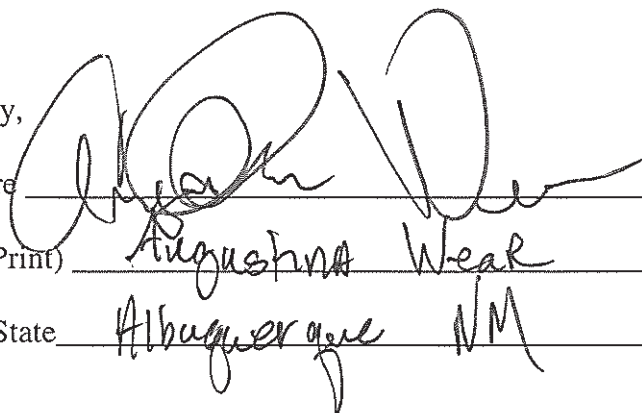 y,
re
Print) Augustina Wear
State Albuquerque NM